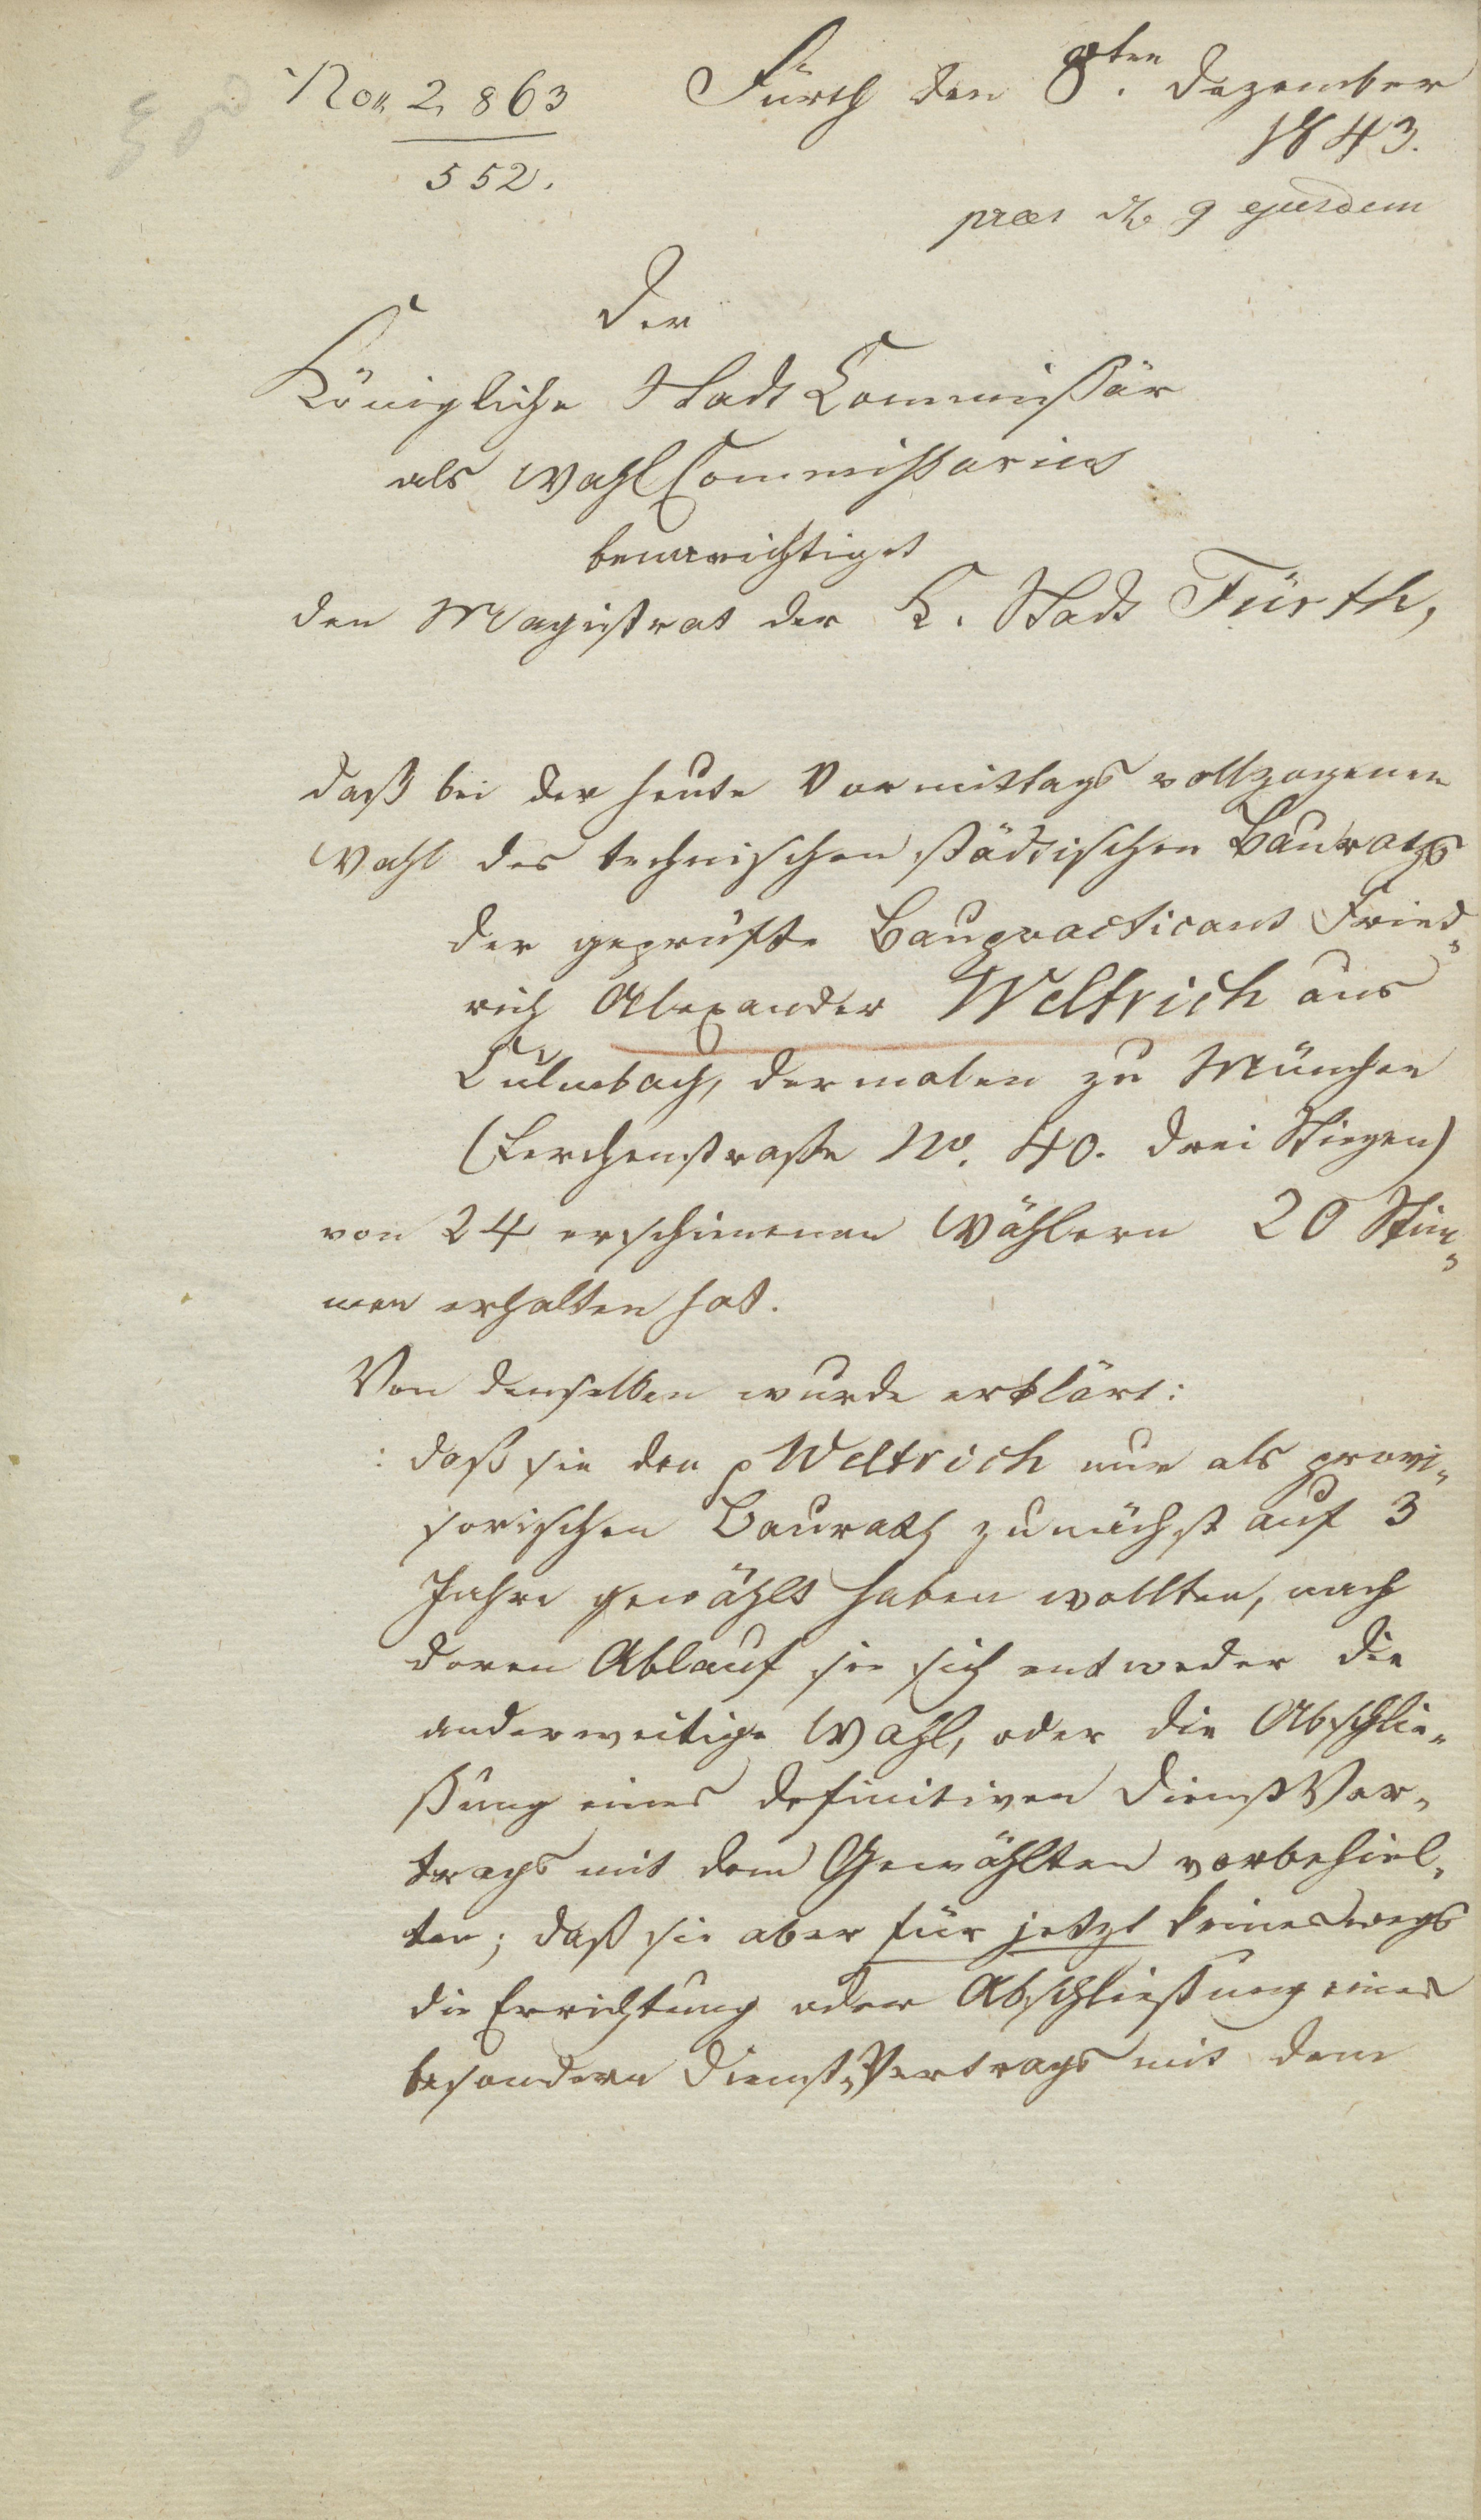 No 2,863
552.
Fürth den 8ten. Dezember
1843.
praes d. 9 ejusdem
Der
Königliche Stadt Commissär
als Wahl Commissarius
benachrichtiget
den Magistrat der K. Stadt Fürth,
daß bei der heute Vormittags vollzogenen
Wahl des technischen städtischen Bauraths
der geprüfte Baupracticant Fried„
rich Alexander Weltrich aus
Culmbach, dermalen zu München
(Lerchenstraße No. 40. drei Stiegen)
von 24 erschienenen Wählern 20 Stim„
men erhalten hat.
Von denselben wurde erklärt:
: daß sie den p Weltrich nur als provi„
sorischen Baurath zunächst auf 3
Jahre gewählt haben wollten, nach
deren Ablauf sie sich entweder die
anderweitige Wahl, oder die Abschlie„
ßung eines definitiven Dienst Ver„
trags mit dem Gewählten vorbehiel„
ten; daß sie aber für jetzt keineswegs
die Errichtung oder Abschließung eines
besondern Dienst„Vertrags mit dem